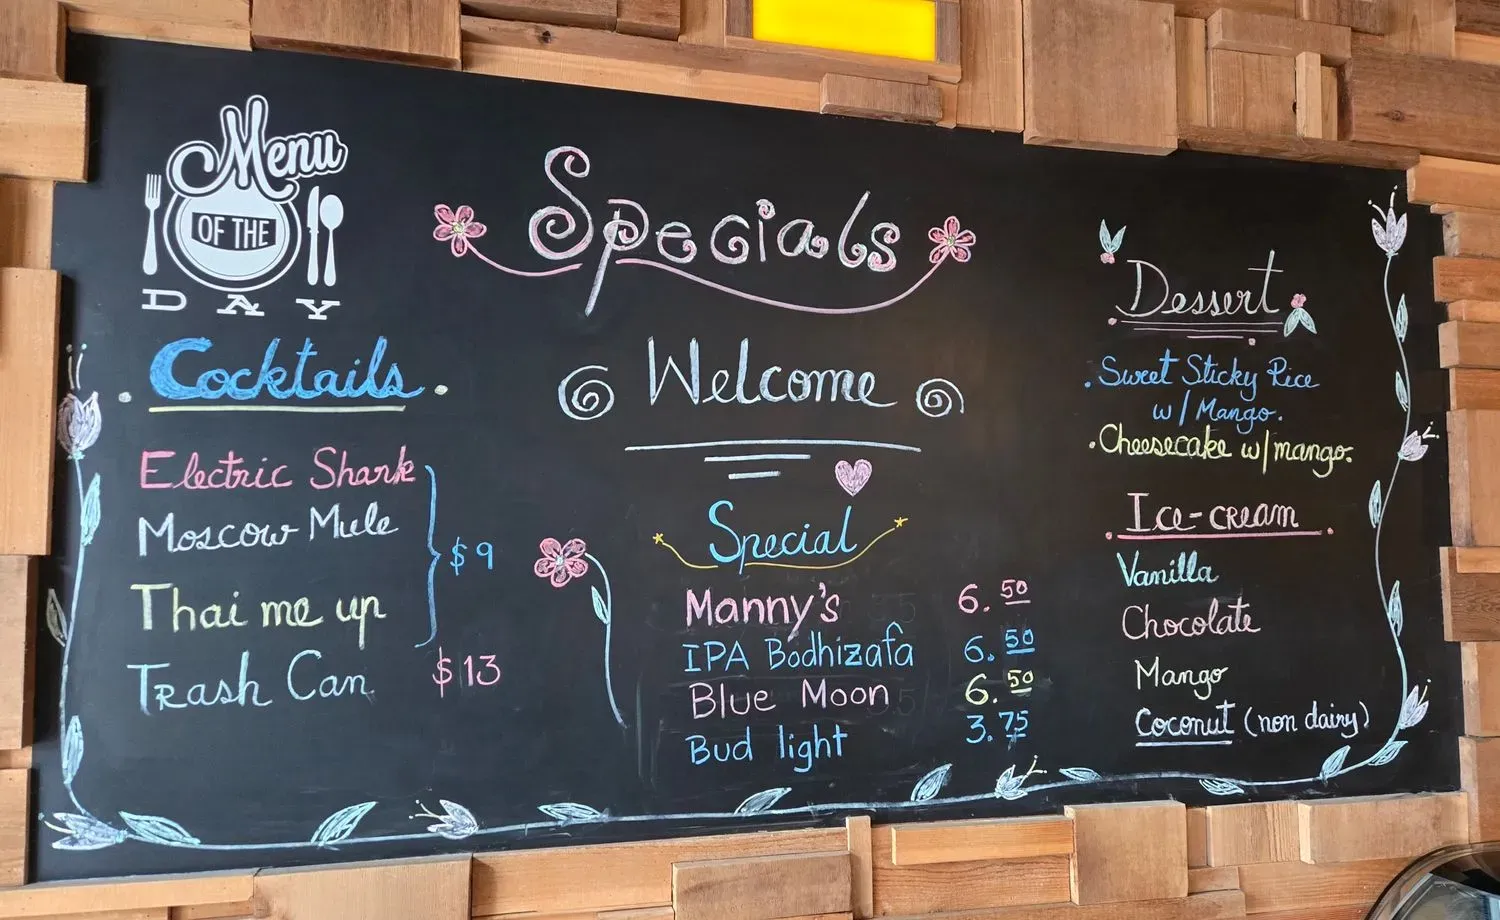 Menu
OF THE
DAY
Specials
Welcome
Cocktails
Electric Shark
Moscow Mule
Thai me up
$9
Trash Can $13
Special
Manny's 6.50
IPA Bodhizafa 6.50
Blue Moon 6.50
Bud light 3.75
Dessert
. Sweet Sticky Rice
w/ Mango.
. Cheesecake w/mango.
Ice-cream
Vanilla
Chocolate
Mango
Coconut (non dairy)